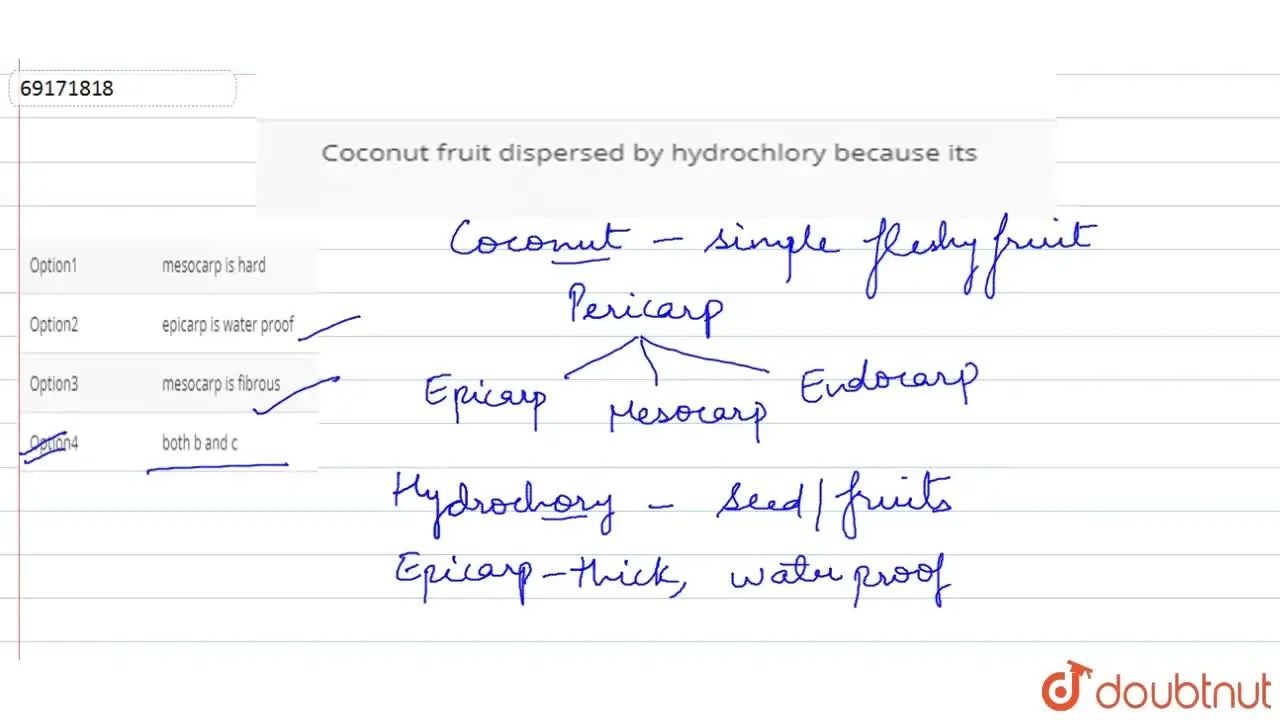 69171818
Coconut fruit dispersed by hydrochlory because its
Coconut – simple fleshy fruit
Option1 mesocarp is hard
Pericarp
Option2 epicarp is water proof
Option3 mesocarp is fibrous
Epicarp Mesocarp Endocarp
Option4 both b and c
Hydrochory – seed/fruits
Epicarp – thick, water proof
doubtnut